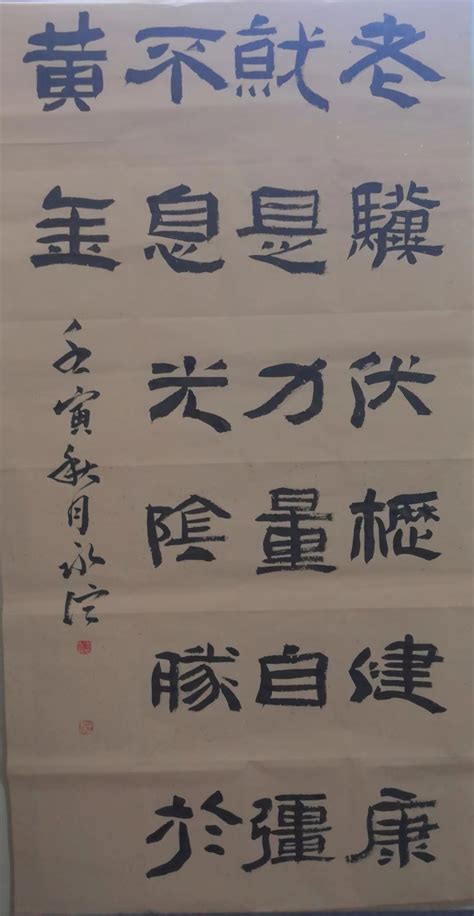 老驥伏櫪健康
就是力量自彊
不息光陰勝於
黄金
壬寅秋月永信